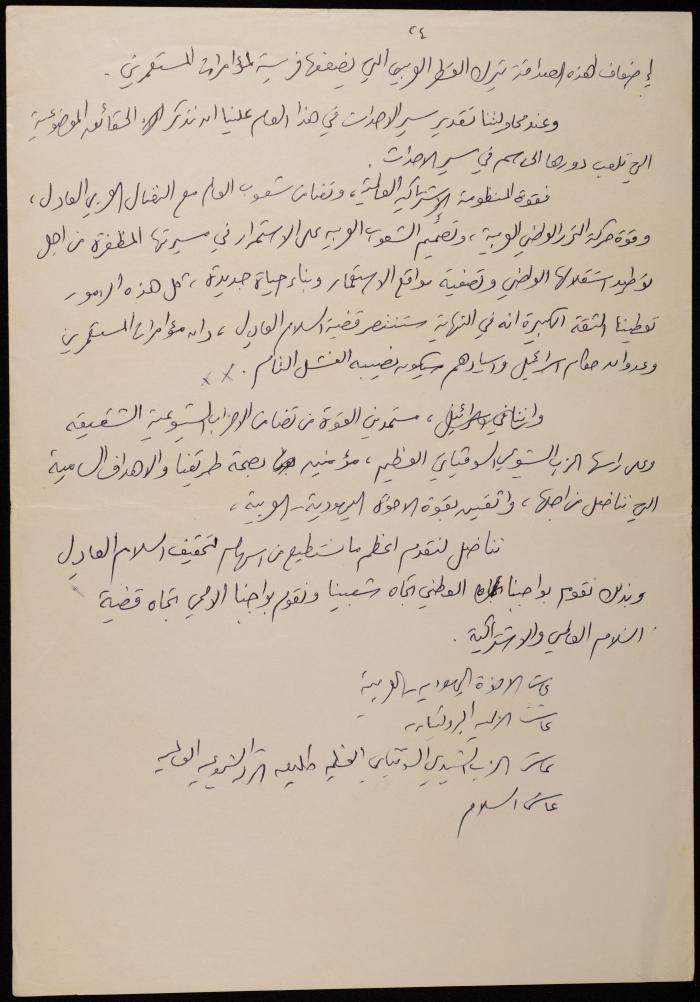 ٢٤
إضعاف لهذه الصداقة يترك القطر العربي الذي يضعفها فريسة لمؤامرات المستعمرين.
وعند محاولتنا تقدير سير الاحداث في هذا العام علينا ان نذكر الحقائق الموضوعية
التي تلعب دورها الحاسم في سير الاحداث.
فقوة المنظومة الاشتراكية العالمية، وتضامن شعوب العالم مع النضال العربي العادل،
وقوة حركة التحرر الوطني العربية، وتصميم الشعوب العربية على الاستمرار في مسيرتها المظفرة من اجل
توطيد استقلالها الوطني وتصفية مواقع الاستعمار وبناء حياة جديدة، كل هذه الامور
تعطينا الثقة الكبيرة انه في النهاية ستنتصر قضية السلام العادل، وان مؤامرات المستعمرين
وعدوان حكام اسرائيل واسيادهم سيكون نصيبه الفشل التام. x x
واننا في اسرائيل، مستمدين القوة من تضامن الاحزاب الشيوعية الشقيقة
وعلى راسها الحزب الشيوعي السوفياتي العظيم، مؤمنين بصحة طريقنا والاهداف السامية
التي نناضل من اجلها، واثقين بقوة الاخوة اليهودية - العربية،
نناضل لنقدم اعظم ما نستطيع من اسهام لتحقيق السلام العادل
وبذلك نقوم بواجبنا الوطني تجاه شعبينا ونقوم بواجبنا الاممي تجاه قضية
السلام العالمي والاشتراكية.
عاشت الاخوة اليهودية - العربية
عاشت الاممية البروليتارية
عاش الحزب الشيوعي السوفياتي العظيم طليعة الحركة الشيوعية العالمية
عاش السلام